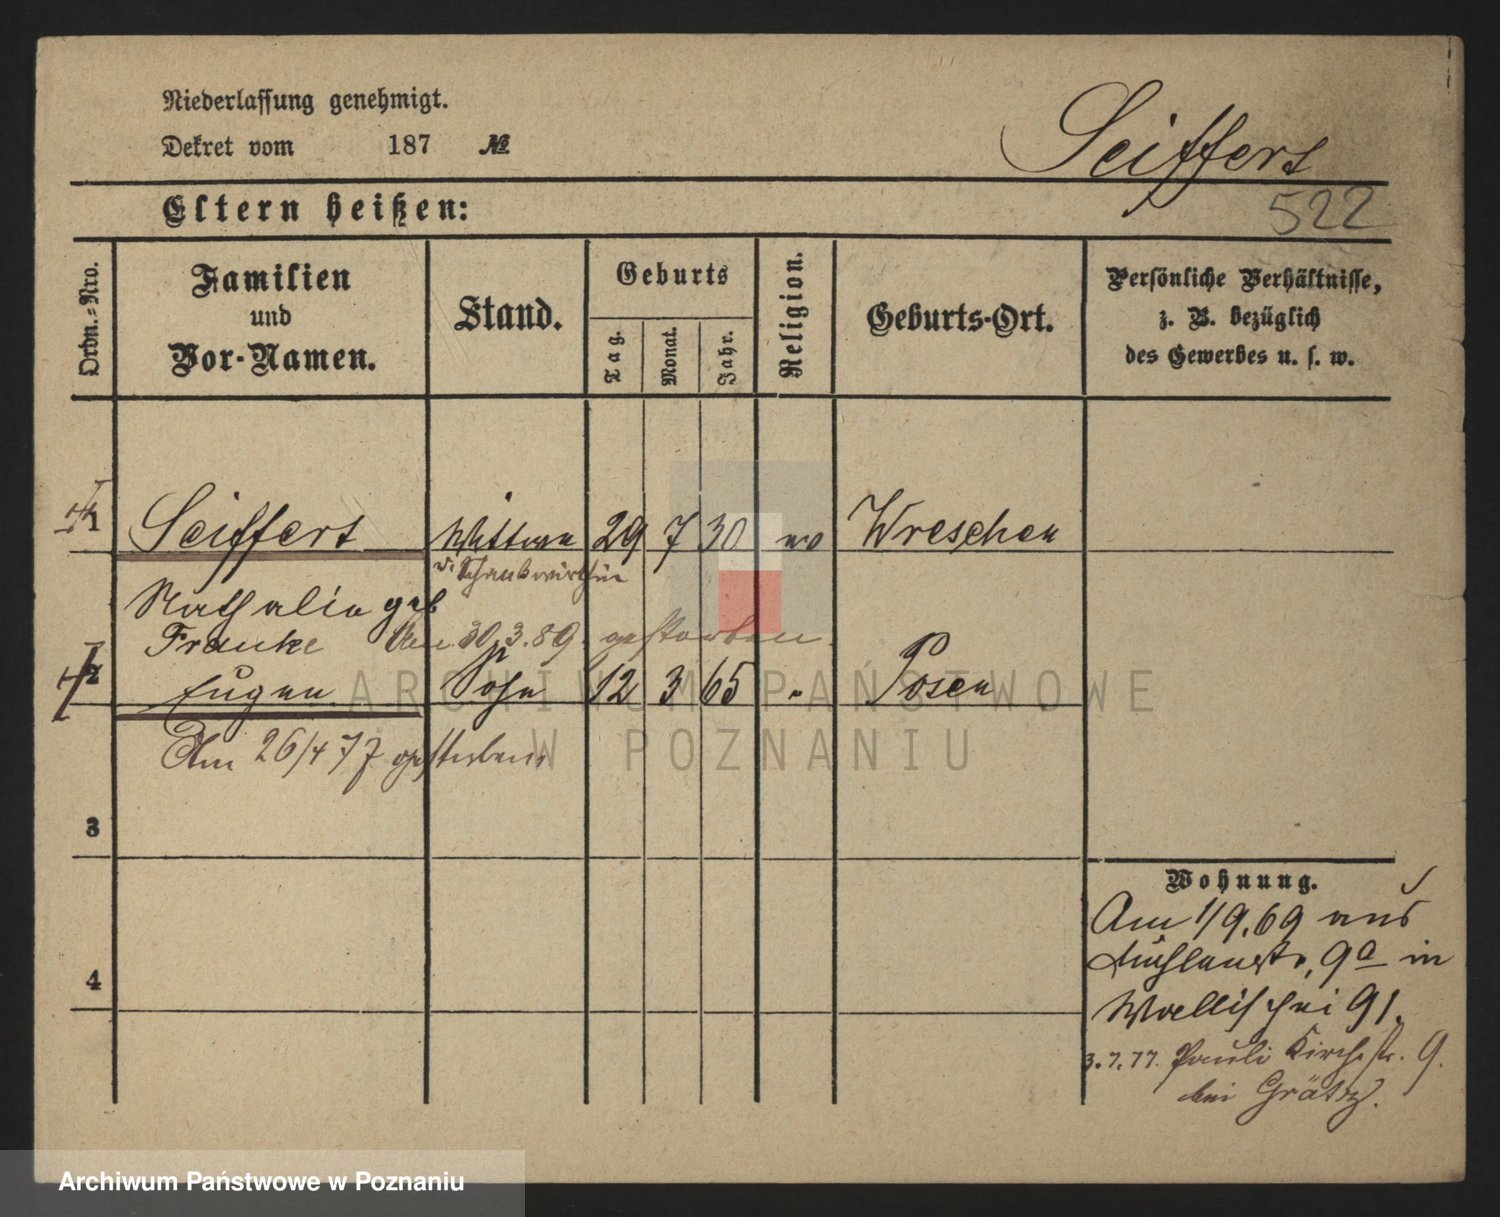 Niederlassung genehmigt.
Dekret vom 187 №
Seiffert
Eltern heißen:
522
Ordn.-Nro.
Familien
und
Vor-Namen.
Stand.
Geburts
Tag.
Monat.
Jahr.
Religion.
Geburts-Ort.
Persönliche Verhältnisse,
z. B. bezüglich
des Gewerbes u. s. w.
1 Seiffert Wittwe 29 7 30 ev Wreschen
u. Schankwirthin
Nathalie geb
Franke Am 30.3.89. gestorben.
2 Eugen Sohn 12 3 65 " Posen
Am 26/4 77 gestorben
3
4
Wohnung.
Am 1/9.69 aus
Mühlenstr. 9a in
Wallischei 91.
3.7.77. Pauli Kirchstr. 9.
bei Grätz.
ARCHIWUM PAŃSTWOWE
W POZNANIU
Archiwum Państwowe w Poznaniu